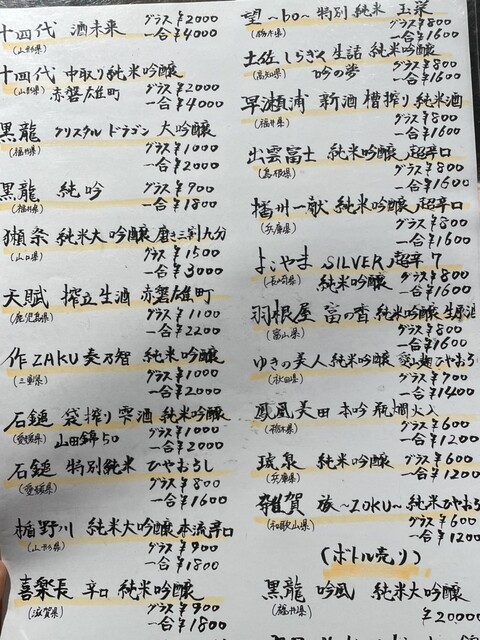 十四代 酒未来 グラス ¥2000
(山形県) 一合 ¥4000
十四代 中取り純米吟醸
(山形県) 赤磐雄町 グラス ¥2000
一合 ¥4000
黒龍 クリスタル ドラゴン 大吟醸
(福井県) グラス ¥1000
一合 ¥2000
黒龍 純吟 グラス ¥900
(福井県) 一合 ¥1800
獺祭 純米大吟醸 磨き三割九分
(山口県) グラス ¥1500
一合 ¥3000
天賦 搾立生酒 赤磐雄町
(鹿児島県) グラス ¥1100
一合 ¥2200
作 ZAKU 奏乃智 純米吟醸
(三重県) グラス ¥1000
一合 ¥2000
石鎚 袋搾り雫酒 純米吟醸
(愛媛県) 山田錦50 グラス ¥1000
一合 ¥2000
石鎚 特別純米 ひやおろし
(愛媛県) グラス ¥800
一合 ¥1600
楯野川 純米大吟醸 本流辛口
(山形県) グラス ¥900
一合 ¥1800
喜楽長 辛口 純米吟醸
(滋賀県) グラス ¥900
一合 ¥1800
望 ~bo~ 特別純米 玉栄
(栃木県) グラス ¥800
一合 ¥1600
土佐しらぎく 生詰 純米吟醸
(高知県) 吟の夢 グラス ¥800
一合 ¥1600
早瀬浦 新酒 槽搾り 純米酒
(福井県) グラス ¥800
一合 ¥1600
出雲富士 純米吟醸 超辛口
(島根県) グラス ¥800
一合 ¥1600
播州一献 純米吟醸 超辛口
(兵庫県) グラス ¥800
一合 ¥1600
よこやま SILVER 超辛7
(長崎県) 純米吟醸 グラス ¥800
一合 ¥1600
羽根屋 富の香 純米吟醸 生原酒
(富山県) グラス ¥800
一合 ¥1600
ゆきの美人 純米吟醸 ひやおろ
(秋田県) グラス ¥700
一合 ¥1400
鳳凰美田 本吟 瓶燗火入
(栃木県) グラス ¥600
一合 ¥1200
琥泉 純米吟醸 グラス ¥600
(兵庫県) 一合 ¥1200
雑賀 族 ~ZOKU~ 純米 ひやおろ
(和歌山県) グラス ¥600
一合 ¥1200
(ボトル売り)
黒龍 吟風 純米大吟醸
(福井県) ¥20000